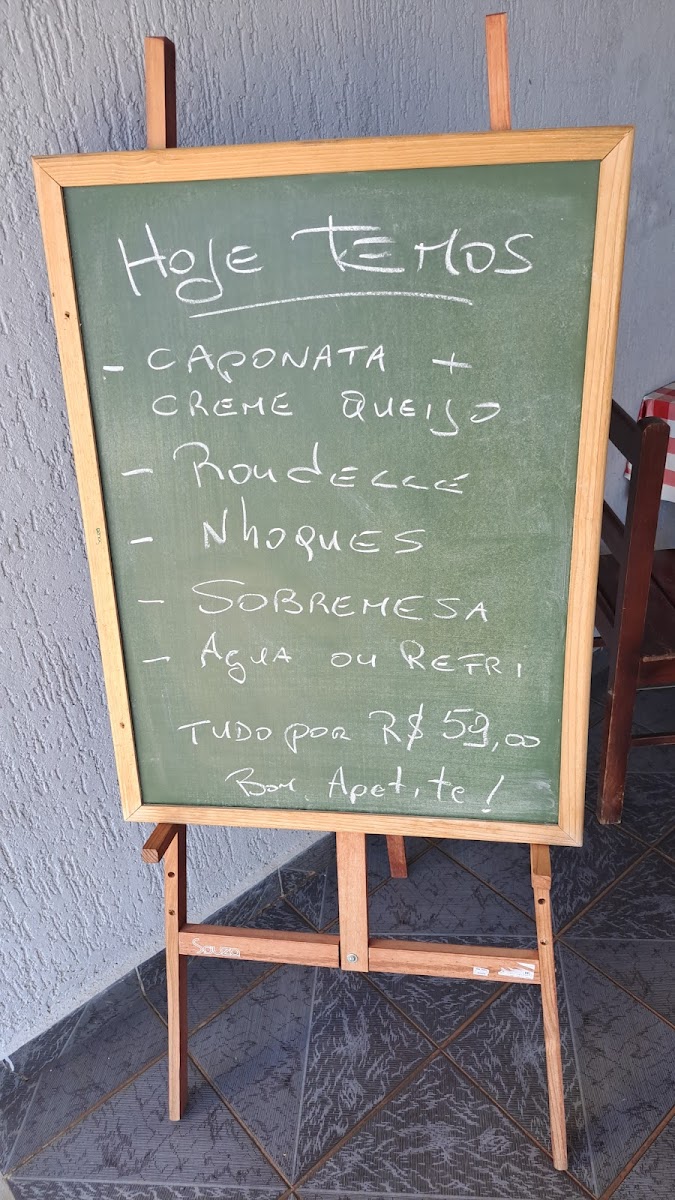 Hoje TEMOS
- CAPONATA +
CREME QUEIJO
- RONDELLE
- NhOQUES
- SOBREMESA
- Água ou REFRI
TUDO POR R$ 59,00
Bom Apetite!